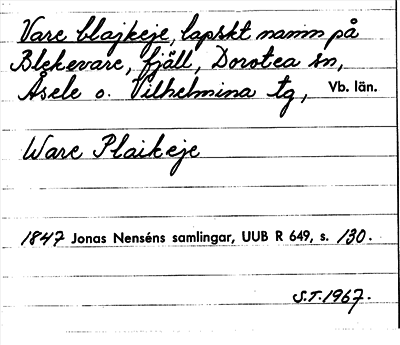 Vare blajkeje, lapskt namn på
Blekevare, fjäll, Dorotea sn,
Åsele o. Vilhelmina tg, Vb. län.
Ware Plaikeje
1847 Jonas Nenséns samlingar, UUB R 649, s. 130.
S.T. 1967.